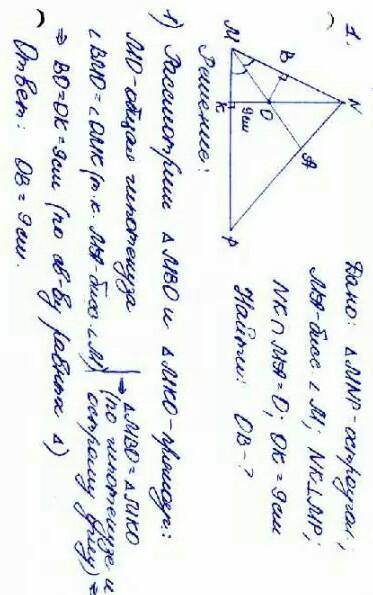 1.
Дано: ΔMNP-остроугол.;
MA-бисс ∠M; NK⊥MP;
NK∩MA=O; OK=9см
Найти: OB-?
N
B
A
O
9см
M
K
P
Решение:
1) Рассмотрим ΔMBO и ΔMKO-прямоуг.:
MO-общая гипотенуза
∠BMO=∠OMK (т.к. MA-бисс.∠M) ⇒ ΔMBO=ΔMKO
(по гипотенузе и
острому углу) ⇒
⇒ BO=OK=9см (по св-ву равных Δ)
Ответ: OB=9см.